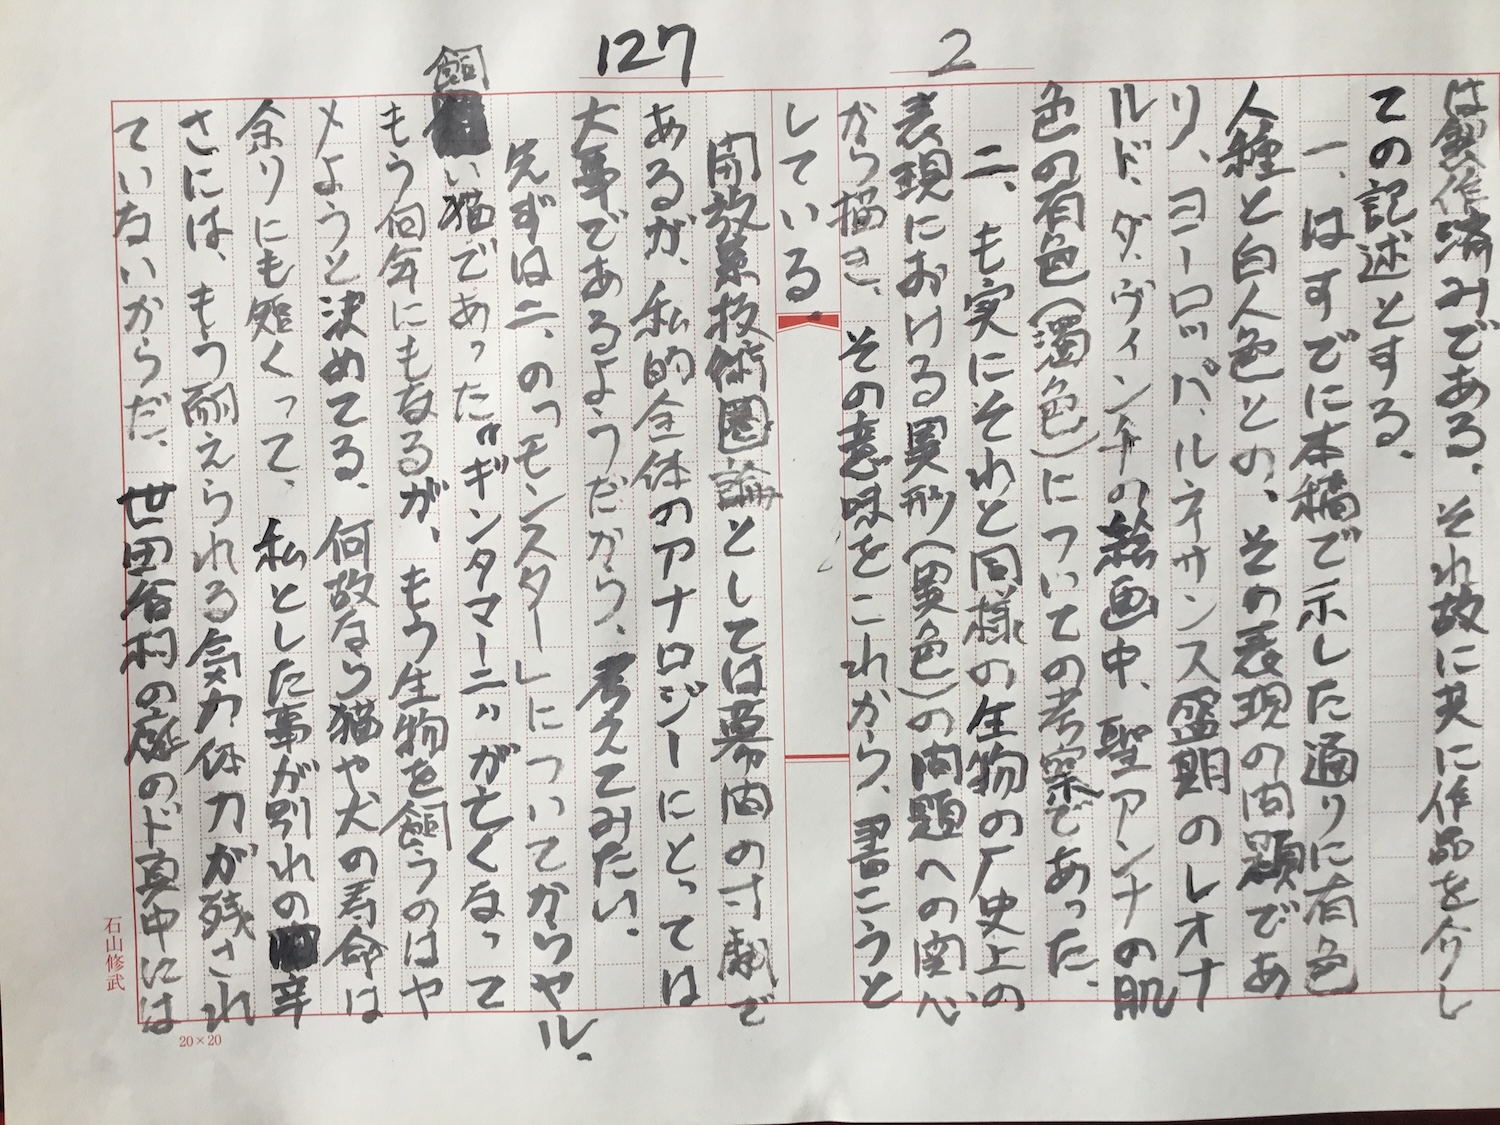 127
2
は製作済みである。それ故に共に作品を介し
ての記述とする。
一、はすでに本稿で示した通りに有色
人種と白人色との、その表現の問題であ
り、ヨーロッパ、ルネイサンス盛期のレオナ
ルド、ダ、ヴィンチの絵画中、聖アンナの肌
色の有色(濁色)についての考察であった。
二、も実にそれと同様の生物の厂史上の
表現における異形(異色)の問題への関心
から描き、その意味をこれから、書こうと
している。
開放系技術圏論としては幕間の寸劇で
あるが、私的全体のアナロジーにとっては
大事であるようだから、考えてみたい。
先ずは二、の「モンスター」についてからヤル。
飼い猫であった"ギンタマーニ"が亡くなって
もう何年にもなるが、もう生物を飼うのはや
メようと決めてる。何故なら猫や犬の寿命は
余りにも短くって、私とした事が別れの辛
さには、もう耐えられる気力体力が残され
ていないからだ。世田谷村の庭のド真中には
石山修武
20×20